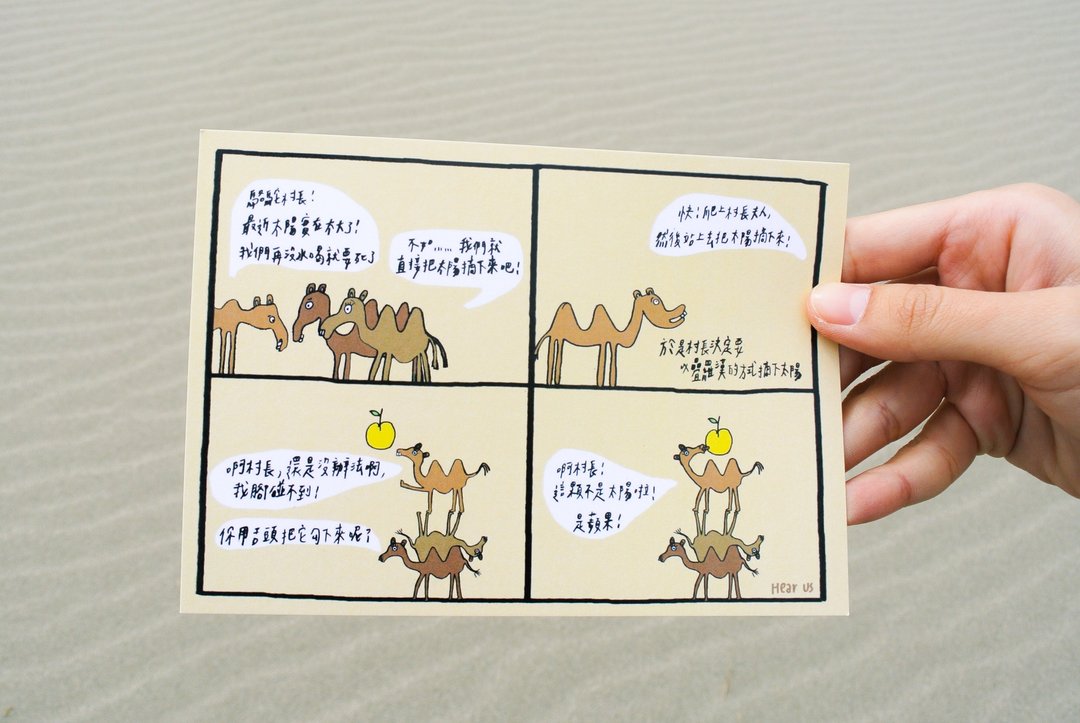 駱駝村長!
最近太陽實在太大了!
我們再沒水喝就要死了
不如…… 我們就
直接把太陽摘下來吧!
快!爬上村長夫人,
然後站上去把太陽摘下來!
於是村長決定要
以疊羅漢的方式摘下太陽
啊村長,還是沒辦法啊,
我腳碰不到!
你用舌頭把它勾下來呢?
啊村長!
這顆不是太陽啦!
是蘋果!
Hear us